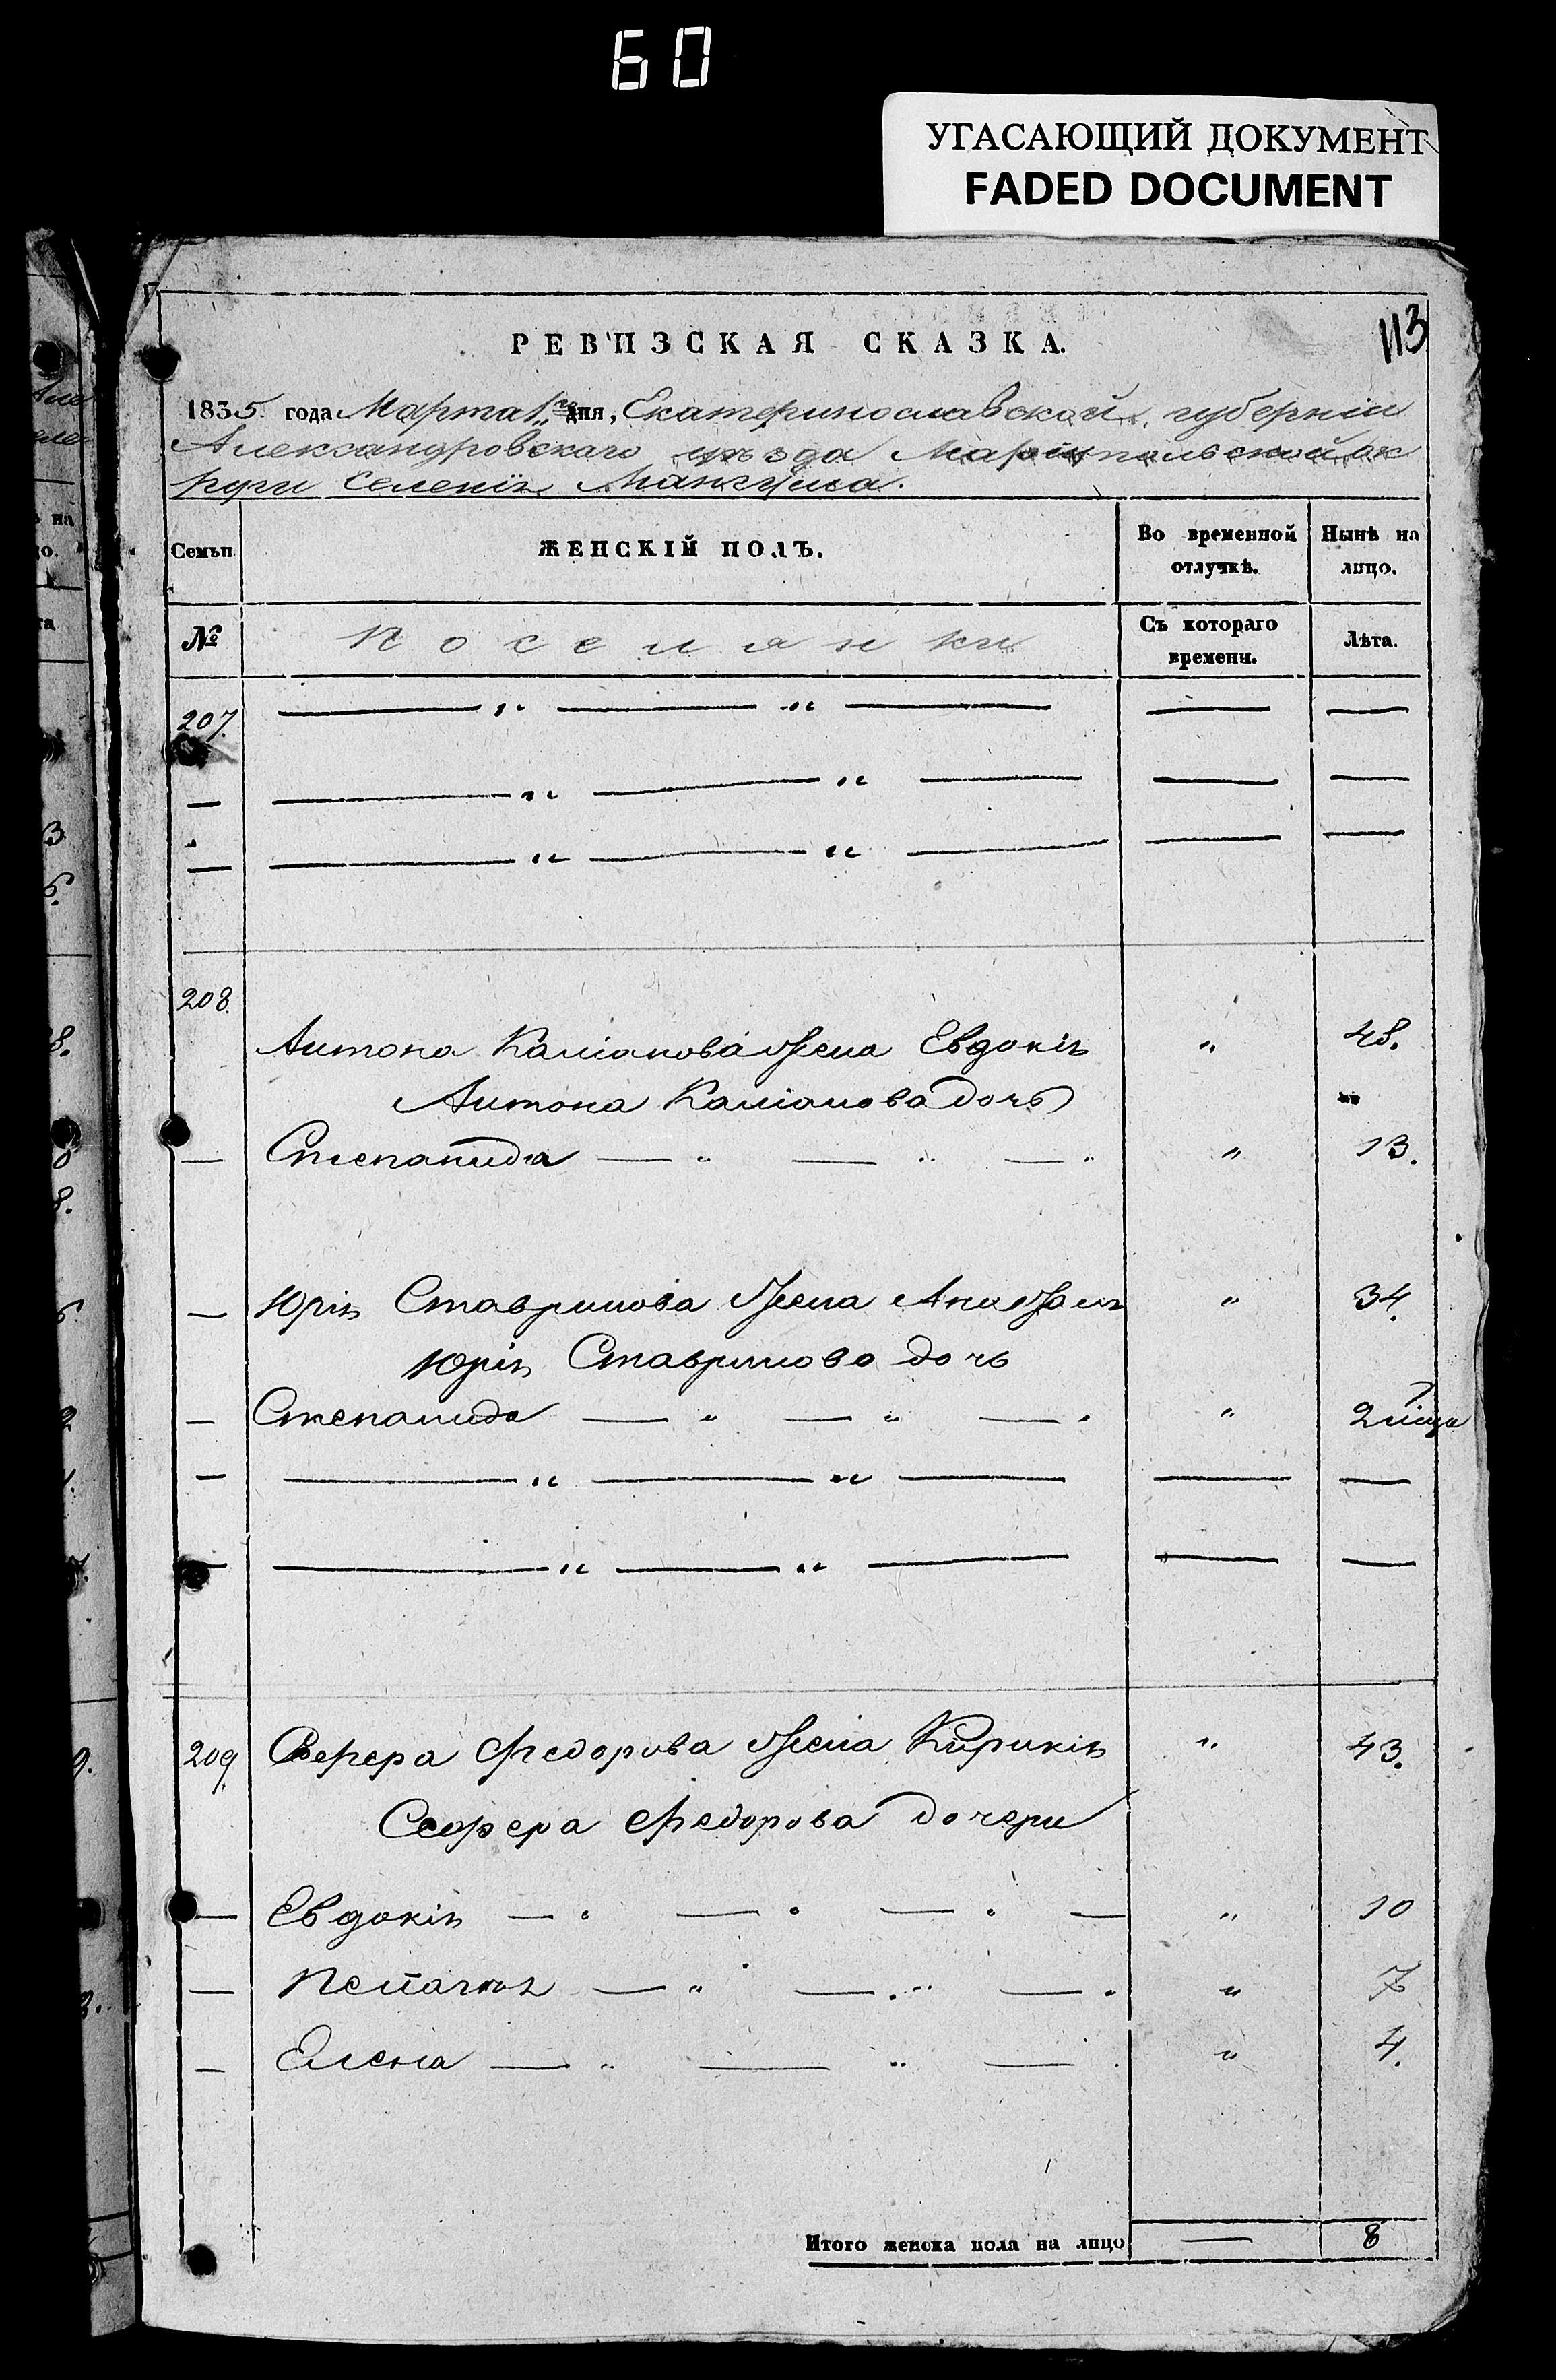 60
УГАСАЮЩИЙ ДОКУМЕНТ
FADED DOCUMENT
113
РЕВИЗСКАЯ СКАЗКА.
1835 года Марта 1го дня, Екатеринославской губерніи
Александровскаго уѣзда Маріупольской ок
руги Селенія Мангуша.
Семьи. ЖЕНСКІЙ ПОЛЪ. Во временной отлучкѣ. Нынѣ на лицо.
№ Поселянки Съ котораго времени. Лѣта.
207. — „ — „ — — —
— — „ — „ — — —
— — „ — „ — — —
208.
Антона Каліанова жена Евдокія „ 48.
Антона Каліанова дочь
— Степанида — „ — „ — „ „ 13.
— Юрія Ставринова жена „ 34.
Юрія Ставринова дочь
— Степанида — „ — „ — „ „ 2
— — „ — „ — — —
— — „ — „ — — —
209. Федорова жена Кирикія „ 43.
Федорова дочери
— Евдокія — „ — „ — „ — „ 10
— — „ — „ — „ „ 7
— Елена — „ — „ — „ 4.
Итого женска пола на лицо — 8